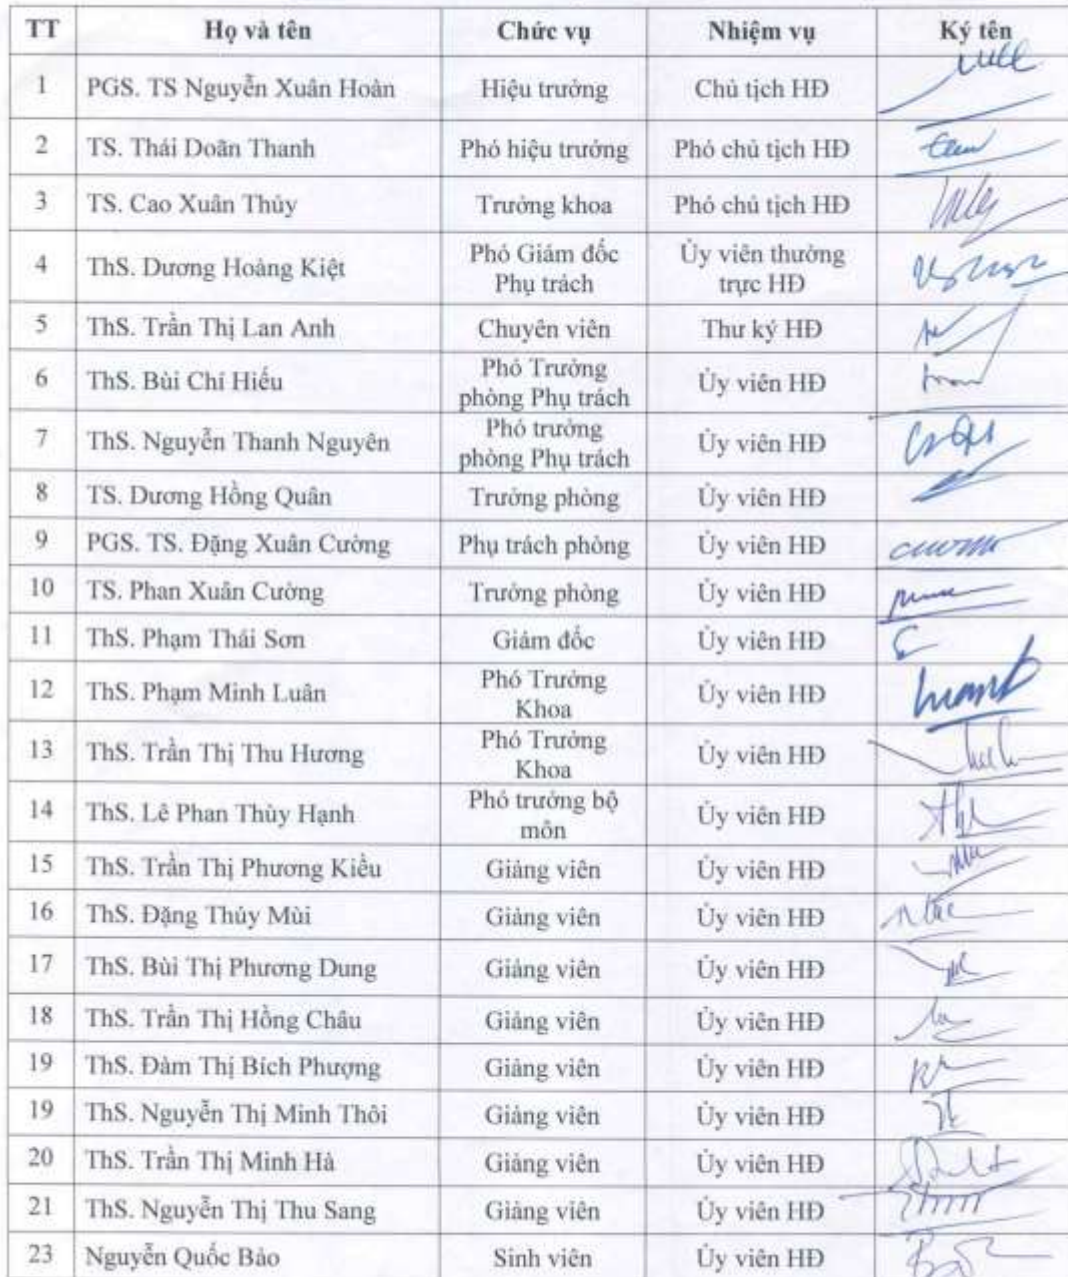 TT Họ và tên Chức vụ Nhiệm vụ Ký tên
1 PGS. TS Nguyễn Xuân Hoàn Hiệu trưởng Chủ tịch HĐ
2 TS. Thái Doãn Thanh Phó hiệu trưởng Phó chủ tịch HĐ
3 TS. Cao Xuân Thủy Trưởng khoa Phó chủ tịch HĐ
4 ThS. Dương Hoàng Kiệt Phó Giám đốc Ủy viên thường
Phụ trách trực HĐ
5 ThS. Trần Thị Lan Anh Chuyên viên Thư ký HĐ
6 ThS. Bùi Chí Hiếu Phó Trưởng Ủy viên HĐ
phòng Phụ trách
7 ThS. Nguyễn Thanh Nguyên Phó trưởng Ủy viên HĐ
phòng Phụ trách
8 TS. Dương Hồng Quân Trưởng phòng Ủy viên HĐ
9 PGS. TS. Đặng Xuân Cường Phụ trách phòng Ủy viên HĐ
10 TS. Phan Xuân Cường Trưởng phòng Ủy viên HĐ
11 ThS. Phạm Thái Sơn Giám đốc Ủy viên HĐ
12 ThS. Phạm Minh Luân Phó Trưởng Ủy viên HĐ
Khoa
13 ThS. Trần Thị Thu Hương Phó Trưởng Ủy viên HĐ
Khoa
14 ThS. Lê Phan Thùy Hạnh Phó trưởng bộ Ủy viên HĐ
môn
15 ThS. Trần Thị Phương Kiều Giảng viên Ủy viên HĐ
16 ThS. Đặng Thúy Mùi Giảng viên Ủy viên HĐ
17 ThS. Bùi Thị Phương Dung Giảng viên Ủy viên HĐ
18 ThS. Trần Thị Hồng Châu Giảng viên Ủy viên HĐ
19 ThS. Đàm Thị Bích Phượng Giảng viên Ủy viên HĐ
19 ThS. Nguyễn Thị Minh Thôi Giảng viên Ủy viên HĐ
20 ThS. Trần Thị Minh Hà Giảng viên Ủy viên HĐ
21 ThS. Nguyễn Thị Thu Sang Giảng viên Ủy viên HĐ
23 Nguyễn Quốc Bảo Sinh viên Ủy viên HĐ